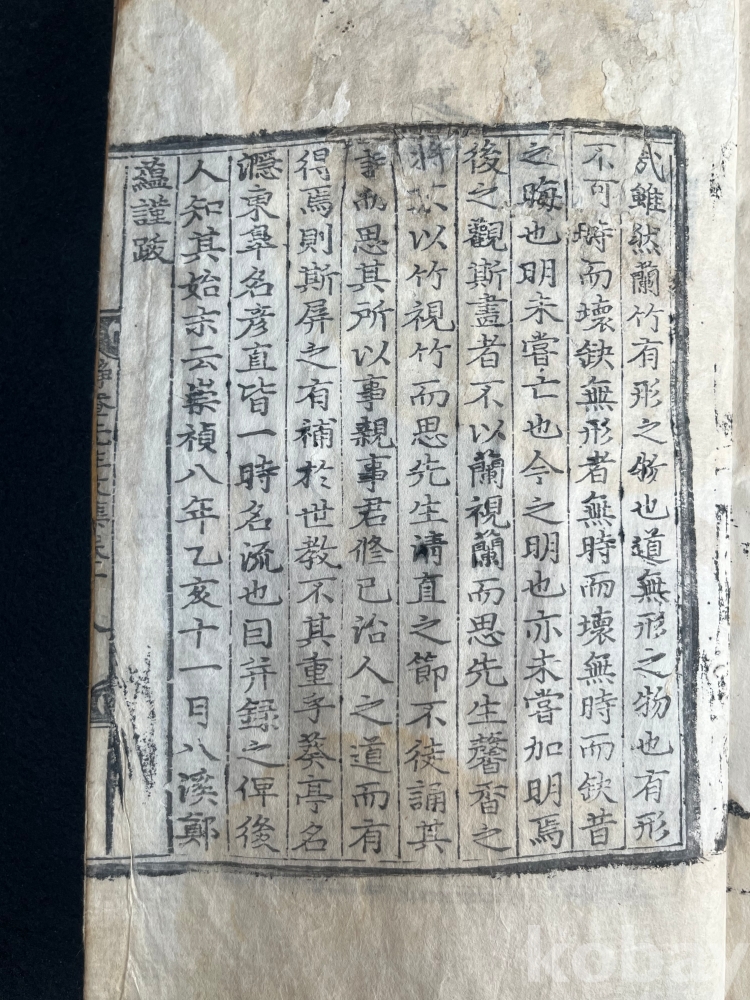 哉雖然蘭竹有形之物也道無形之物也有形
不可時而壞缺無形者無時而壞無時而缺昔
之晦也明未嘗亡也今之明也亦未嘗加明焉
後之觀斯畫者不以蘭視蘭而思先生馨香之
將不以竹視竹而思先生清直之節不徒誦其
詩而思其所以事親事君修己治人之道而有
得焉則斯屏之有補於世教不其重乎葵亭名
濦東皐名彦直皆一時名流也因并錄之俾後
人知其始末云崇禎八年乙亥十一月八溪鄭
蘊謹跋
靜菴先生文集卷
kobay